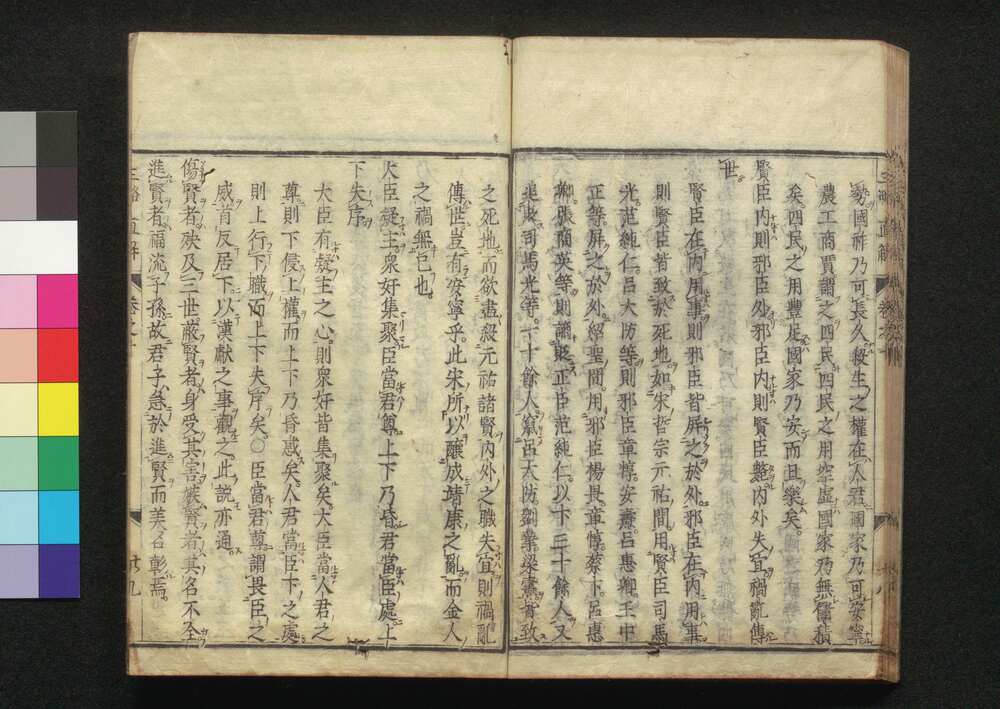 勢國祚乃可長久殺生之權在人君國家乃可安寧
農工商賈謂之四民四民之用空虛國家乃無儲積
矣四民之用豐足國家乃安而且樂矣
賢臣内則邪臣外邪臣内則賢臣斃内外失宜禍亂傳
世
賢臣在内用事則邪臣皆屏之於外邪臣在内用事
則賢臣皆致於死地如宋哲宗元祐間用賢臣司馬
光范純仁呂大防等則邪臣章惇安燾呂惠卿王中
正等屏之於外紹聖間用邪臣楊畏章惇蔡卞呂惠
卿張商英等則謫貶正臣范純仁以下三十餘人又
追貶司馬光等二十餘人竄呂大防劉摯梁燾皆致
之死地而欲盡殺元祐諸賢内外之職失宜則禍亂
傳世豈有安寧乎此宋所以釀成靖康之亂而金人
之禍無已也
大臣疑主衆奸集聚臣當君尊上下乃昏君當臣處上
下失序
大臣有疑主之心則衆奸皆集聚矣大臣當人君之
尊則下侵上權而上下乃昏惑矣人君當臣下之處
則上行下職而上下失序矣〇臣當君尊謂畏臣之
威首反居下以漢獻之事觀之此説亦通
傷賢者殃及三世蔽賢者身受其害嫉賢者其名不全
進賢者福流子孫故君子急於進賢而美名彰焉
三略直解 卷之下